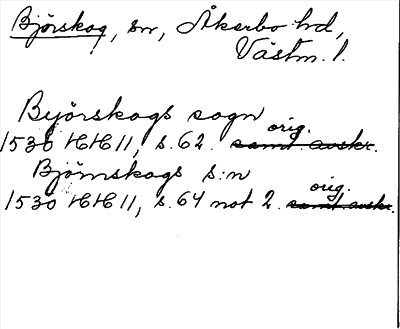 Björskog, sn, Åkerbo hd,
Västm. l.
Byörskogs sogn
1530 HH 11, s. 62. orig. samt. avskr.
Björnskogs s:n
1530 HH 11, s. 64 not 2. orig. samt. avskr.